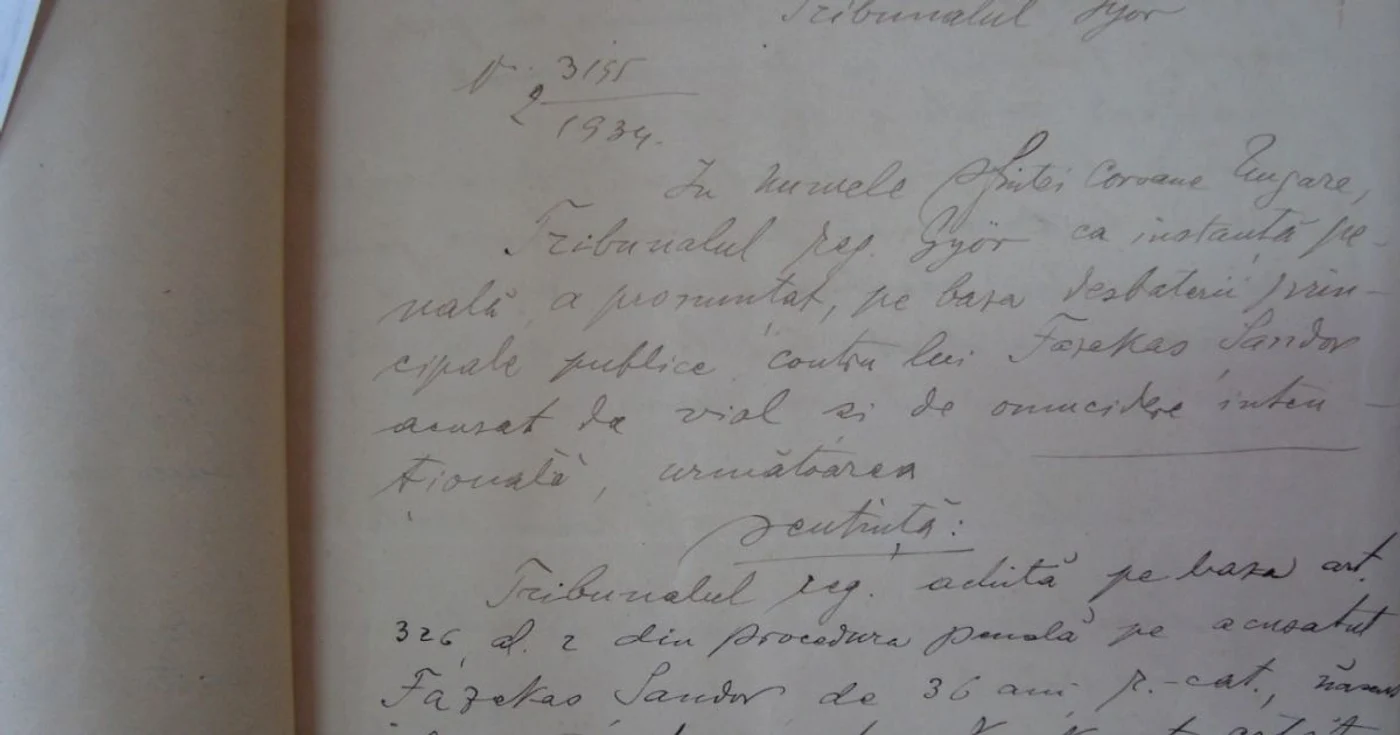 Tribunalul Györ
3195
2
1934.
In numele Sfintei Coroane Ungare,
Tribunalul reg. Györ ca instanță pe-
nală a pronunțat, pe baza desbaterii prin-
cipale publice contra lui Fazekas Sandor
acuzat de viol și de omucidere inten-
țională, următoarea
sentință:
Tribunalul reg. achită pe baza art.
326 al. 2 din procedura penală pe acuzatul
Fazekas Sandor de 36 ani, r.-cat.,